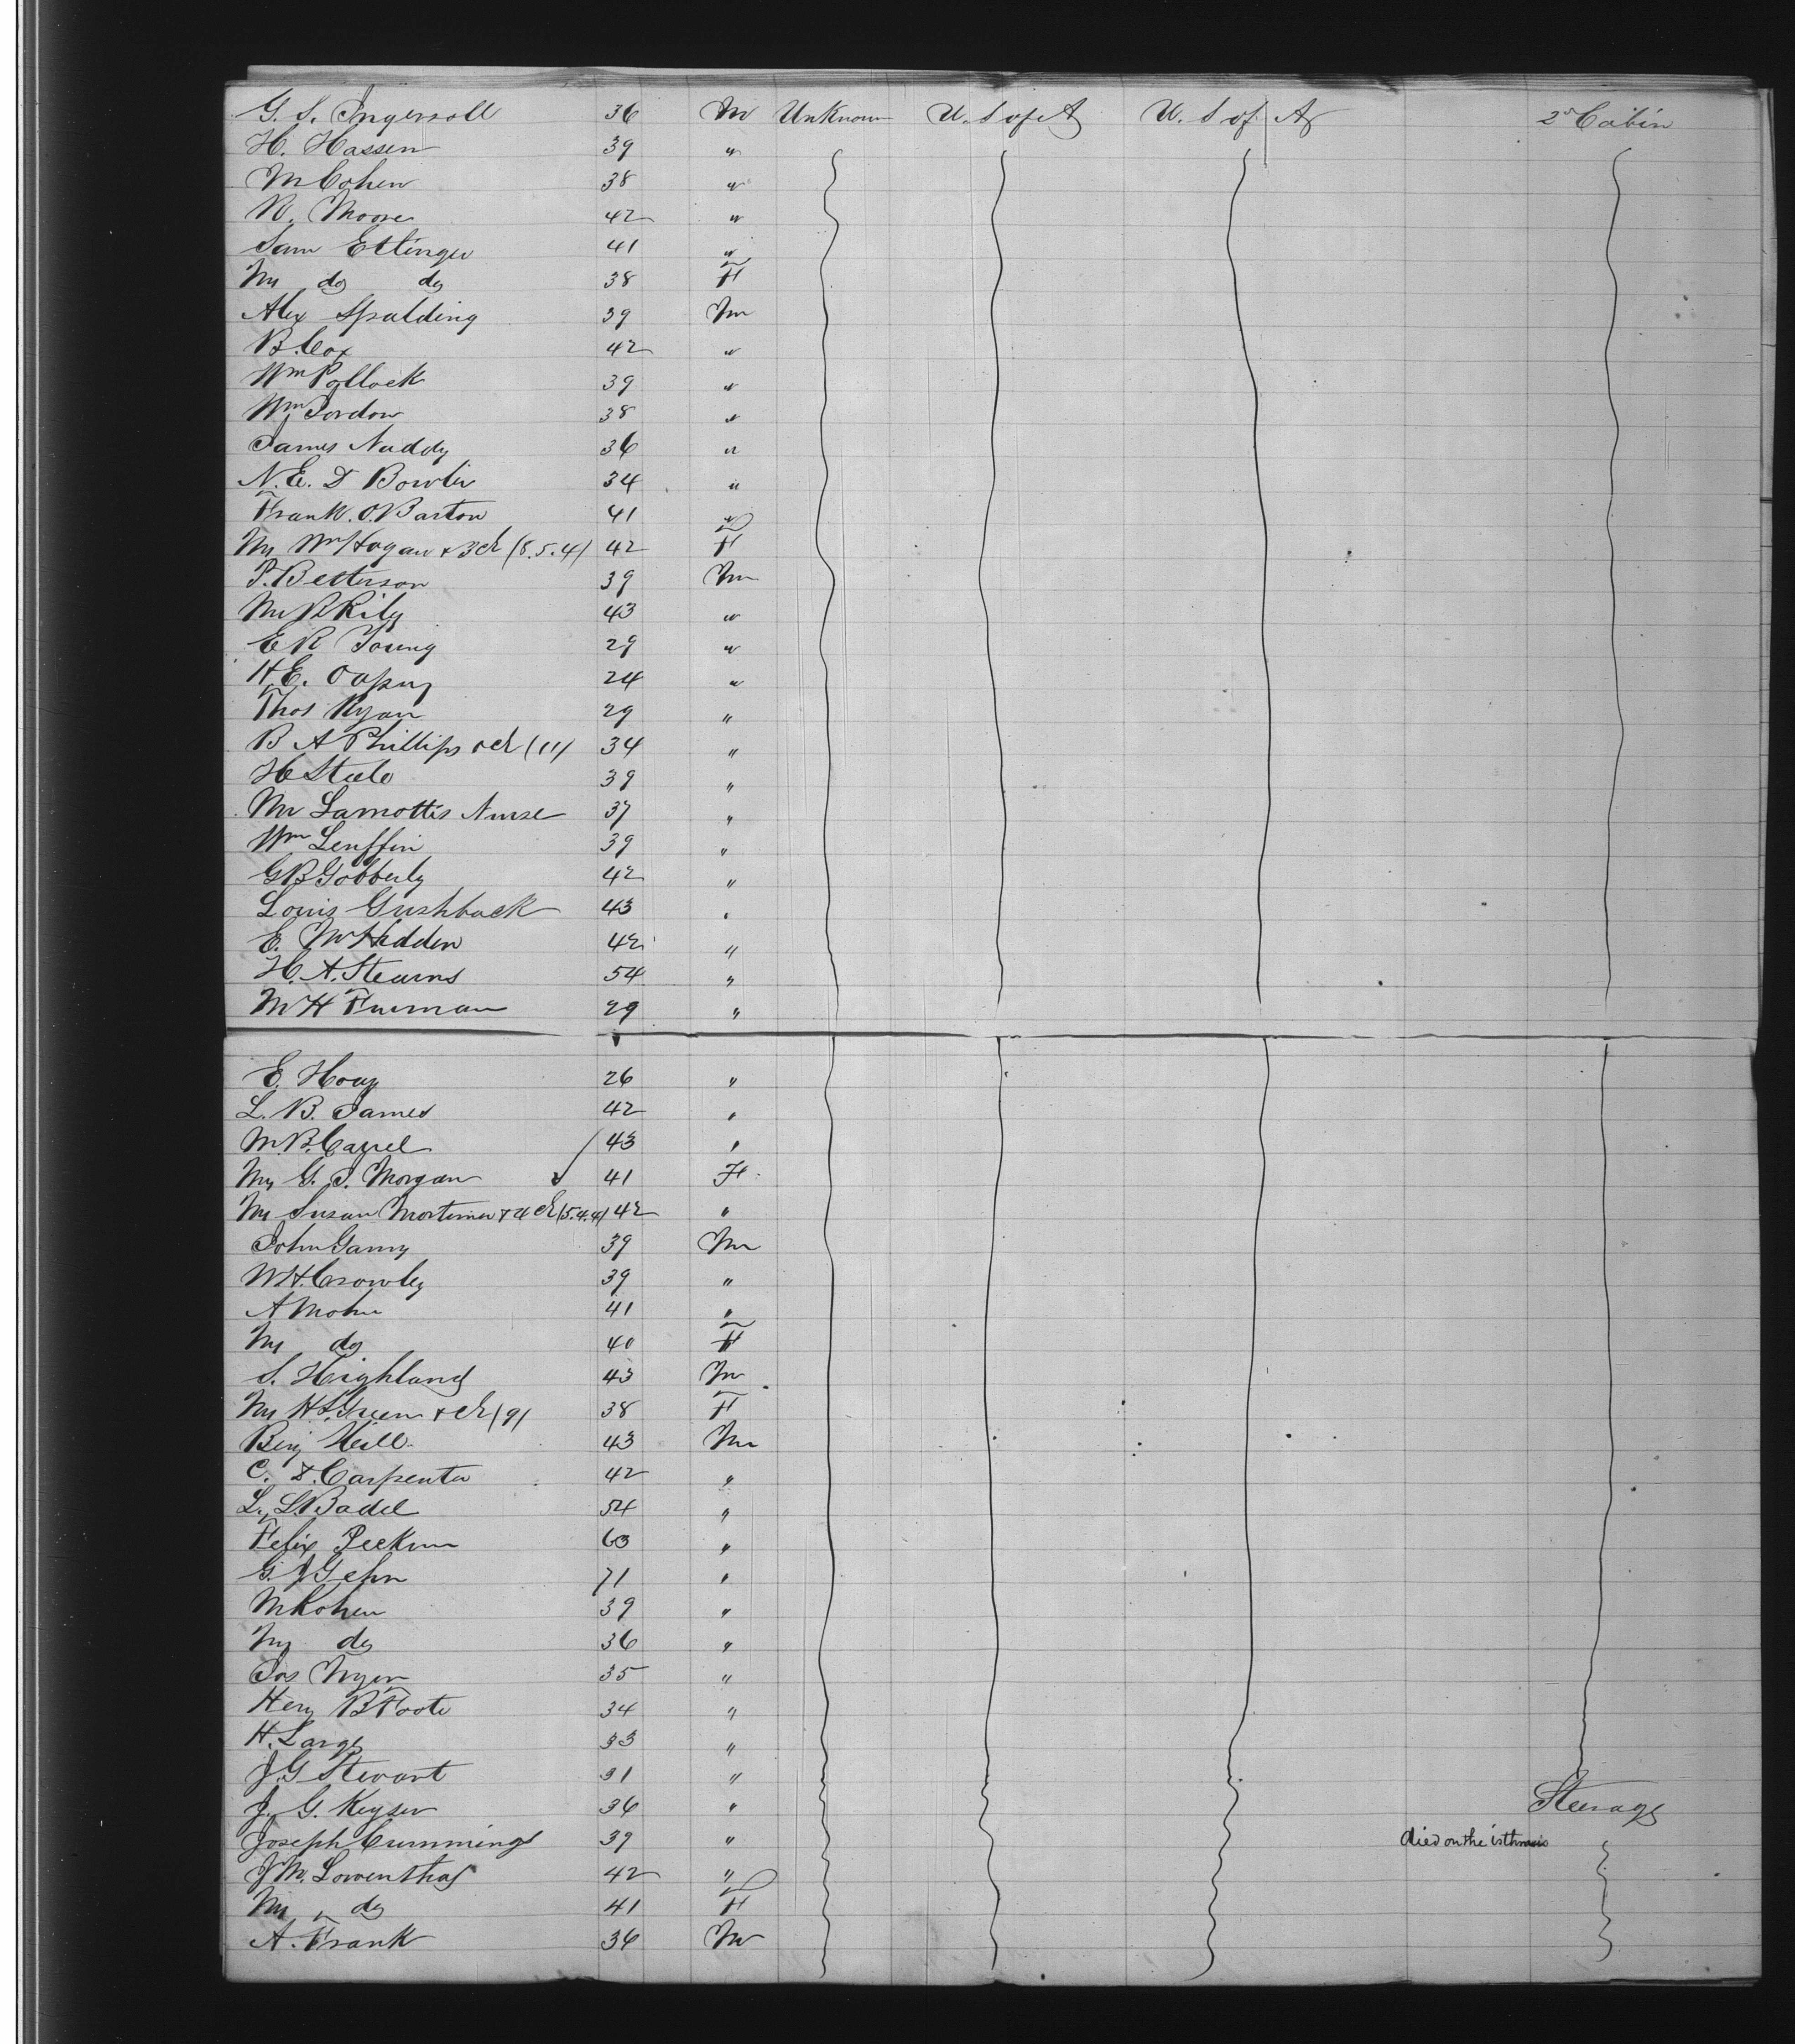 G. S. Ingersoll 36 M Unknown U. S of A U. S of A 2d Cabin
H. Hassen 39 "
M Cohen 38 "
W. Moore 42 "
Sam Ettinger 41 "
Mrs do do 38 F
Alex Spalding 39 M
B. Cox 42 "
Wm Pollock 39 "
Wm Jordon 38 "
James Naddy 36 "
N. E. D Bowlin 34 "
Frank. O. Barton 41 "
Mrs Wm Hogan & 3 ch (8.5.4) 42 F
P. Betterson 39 M
Mr R Rily 43 "
E R Young 29 "
H. E. 24 "
Thos Ryan 29 "
B A Phillips & ch (11) 34 "
H Steele 39 "
Mr Lamottis Nurse 37 "
Wm Lenffin 39 "
G B Gobberly 42 "
Louis Gushback 43 "
E. McHedden 42 "
H. A. Stearns 54 "
M H Furman 29 "
E. Hoag 26 "
L. B. James 42 "
M. B. Carrel 43 "
Mrs G. I. Morgan 41 F
Mrs Susan Mortimer & 4 ch (5.4.4) 42 "
John Ganny 39 M
W H. Crowley 39 "
A Mohn 41 "
Mrs do 40 F
S. Highland 43 M
Mrs H S. Green & ch (9) 38 F
Benj Hill 43 M
C. D. Carpenter 42 "
L. L. Badel 54 "
Felix Peckum 63 "
G. J Gehn 71 "
M Kohen 39 "
Mrs do 36 "
Jos Nyen 35 "
Heny B Foote 34 "
H. Large 33 "
J. G Stewart 31 "
J. G. Keyser 36 " Steerage
Joseph Cummings 39 " died on the isthmus
J M. Lowenthal 42 "
Mrs do 41 F
A. Frank 36 M